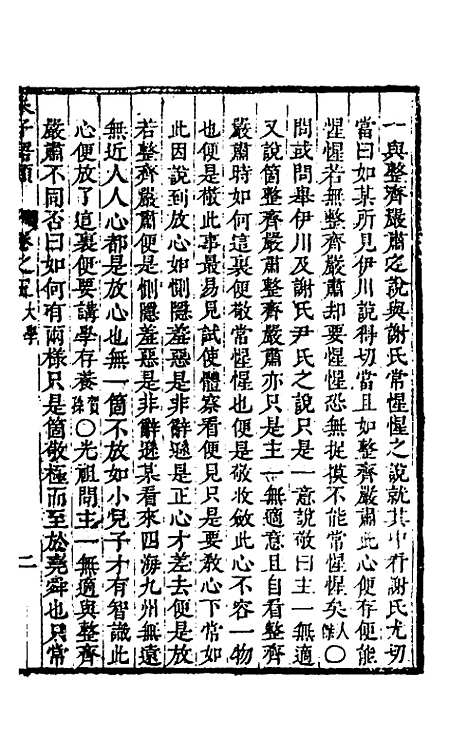 一與整齊嚴肅之說與謝氏常惺惺之說就其中看謝氏尤切
當曰如某所見伊川說得切當且如整齊嚴肅此心便存便能
惺惺若無整齊嚴肅却要惺惺恐無捉摸不能常惺惺矣人傑〇
問或問舉伊川及謝氏尹氏之說只是一意說敬曰主一無適
又說箇整齊嚴肅整齊嚴肅亦只是主一無適意且自看整齊
嚴肅時如何這裏便敬常惺惺也便是敬收斂此心不容一物
也便是敬此事最易見試使體察看便見只是要敎心下常如
此因說到放心如惻隱羞惡是非辭遜是正心才差去便是放
若整齊嚴肅便是惻隱羞惡是非辭遜某看來四海九州無遠
無近人人心都是放心也無一箇不放如小兒子才有智識此
心便放了這裏便要講學存養賀孫〇光祖問主一無適與整齊
嚴肅不同否曰如何有兩樣只是箇敬極而至於堯舜也只常
朱子語類 卷之 大學 二